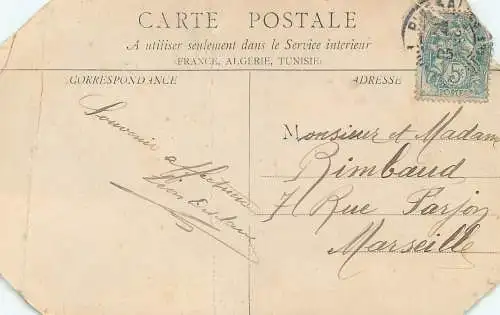 CARTE POSTALE
A utiliser seulement dans le Service intérieur
(FRANCE, ALGÉRIE, TUNISIE)
CORRESPONDANCE
ADRESSE
5c
POSTES
05
Souvenir affectueux
Monsieur et Madame
Rimbaud
7 Rue Parjon
Marseille